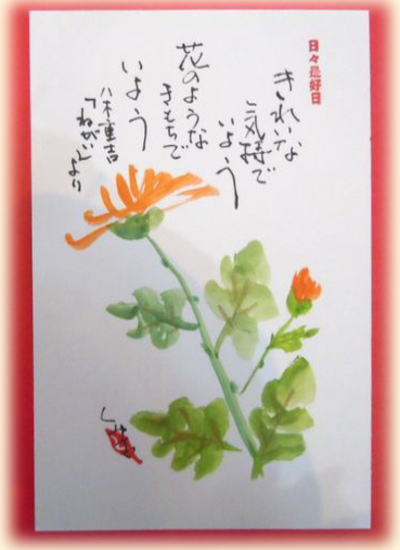 日々是好日
きれいな
気持で
いよう
花のような
きもちで
いよう
八木重吉
「ねがい」より